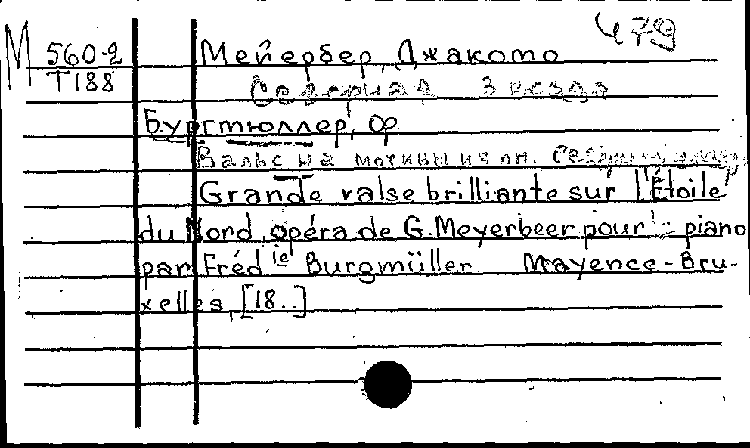 479
М 560-2
Т188
Мейербер, Джакомо
Северная Звезда
Бургмюллер, Ф
Вальс на мотивы из оп.
Grande valse brilliante sur l'Étoile
du Nord, opéra de G. Meyerbeer pour le piano
par Fréd ie Burgmüller Mayence-Bru-
xelles, [18..]